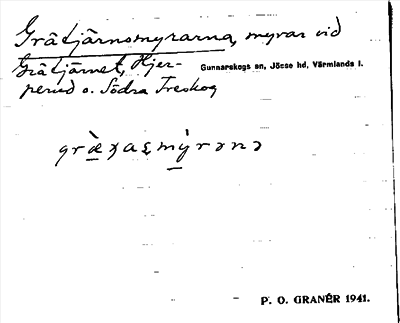 Grätjärnsmyrarna, myrar vid
Grätjärnet, Hjer-
perud o. Södra Treskog
Gunnarskogs sn, Jösse hd, Värmlands l.
P. O. GRANÉR 1941.